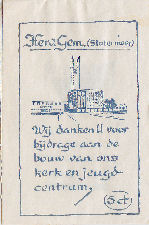 Herv. Gem. (Slotermeer)
Wij danken U voor
bijdrage aan de
bouw van ons
kerk en jeugd-
centrum,